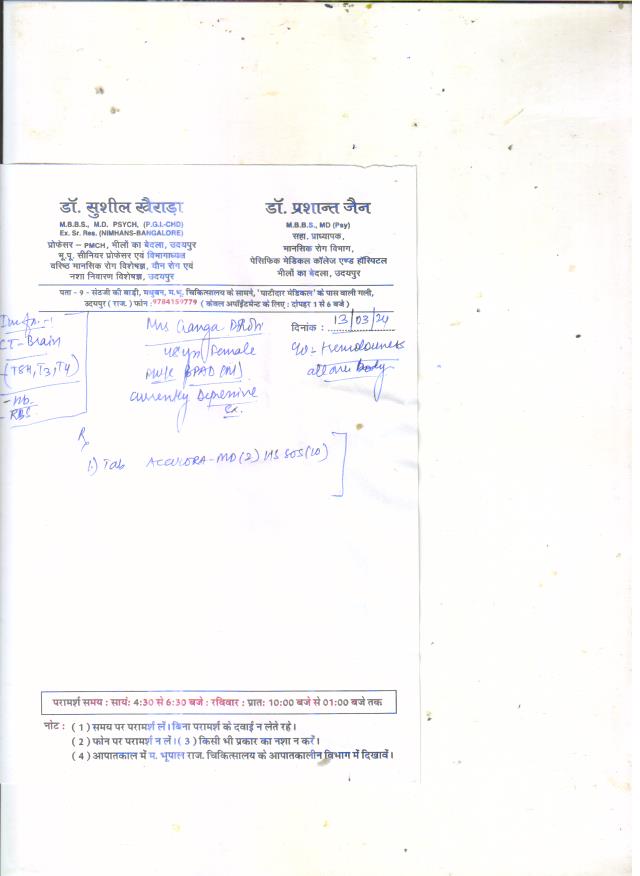 डॉ. सुशील खैराड़ा
M.B.B.S., M.D. PSYCH, (P.G.I.-CHD)
Ex. Sr. Res. (NIMHANS-BANGALORE)
प्रोफेसर – PMCH, भीलों का बेदला, उदयपुर
भू.पू. सीनियर प्रोफेसर एवं विभागाध्यक्ष
वरिष्ठ मानसिक रोग विशेषज्ञ, यौन रोग एवं
नशा निवारण विशेषज्ञ, उदयपुर
डॉ. प्रशान्त जैन
M.B.B.S., MD (Psy)
सहा. प्राध्यापक,
मानसिक रोग विभाग,
पेसिफिक मेडिकल कॉलेज एण्ड हॉस्पिटल
भीलों का बेदला, उदयपुर
पता - 9 - सेठजी की बाड़ी, मधुबन, म.भू. चिकित्सालय के सामने, 'पाटीदार मेडिकल' के पास वाली गली,
उदयपुर ( राज. ) फोन : 9784159779 ( केवल अपॉइंटमेन्ट के लिए : दोपहर 1 से 6 बजे )
दिनांक : 13/03/24
CT-Brain
(TSH, T3, T4)
- Hb
- RBS
Mrs Ganga
Female
BPAD
currently Depressive
tremolousness
all over body
Rx
1.) Tab MD (2) HS SOS (10)
परामर्श समय : सायं: 4:30 से 6:30 बजे : रविवार : प्रात: 10:00 बजे से 01:00 बजे तक
नोट : ( 1 ) समय पर परामर्श लें। बिना परामर्श के दवाई न लेते रहे।
( 2 ) फोन पर परामर्श न लें। ( 3 ) किसी भी प्रकार का नशा न करें।
( 4 ) आपातकाल में म. भूपाल राज. चिकित्सालय के आपातकालीन विभाग में दिखावें।